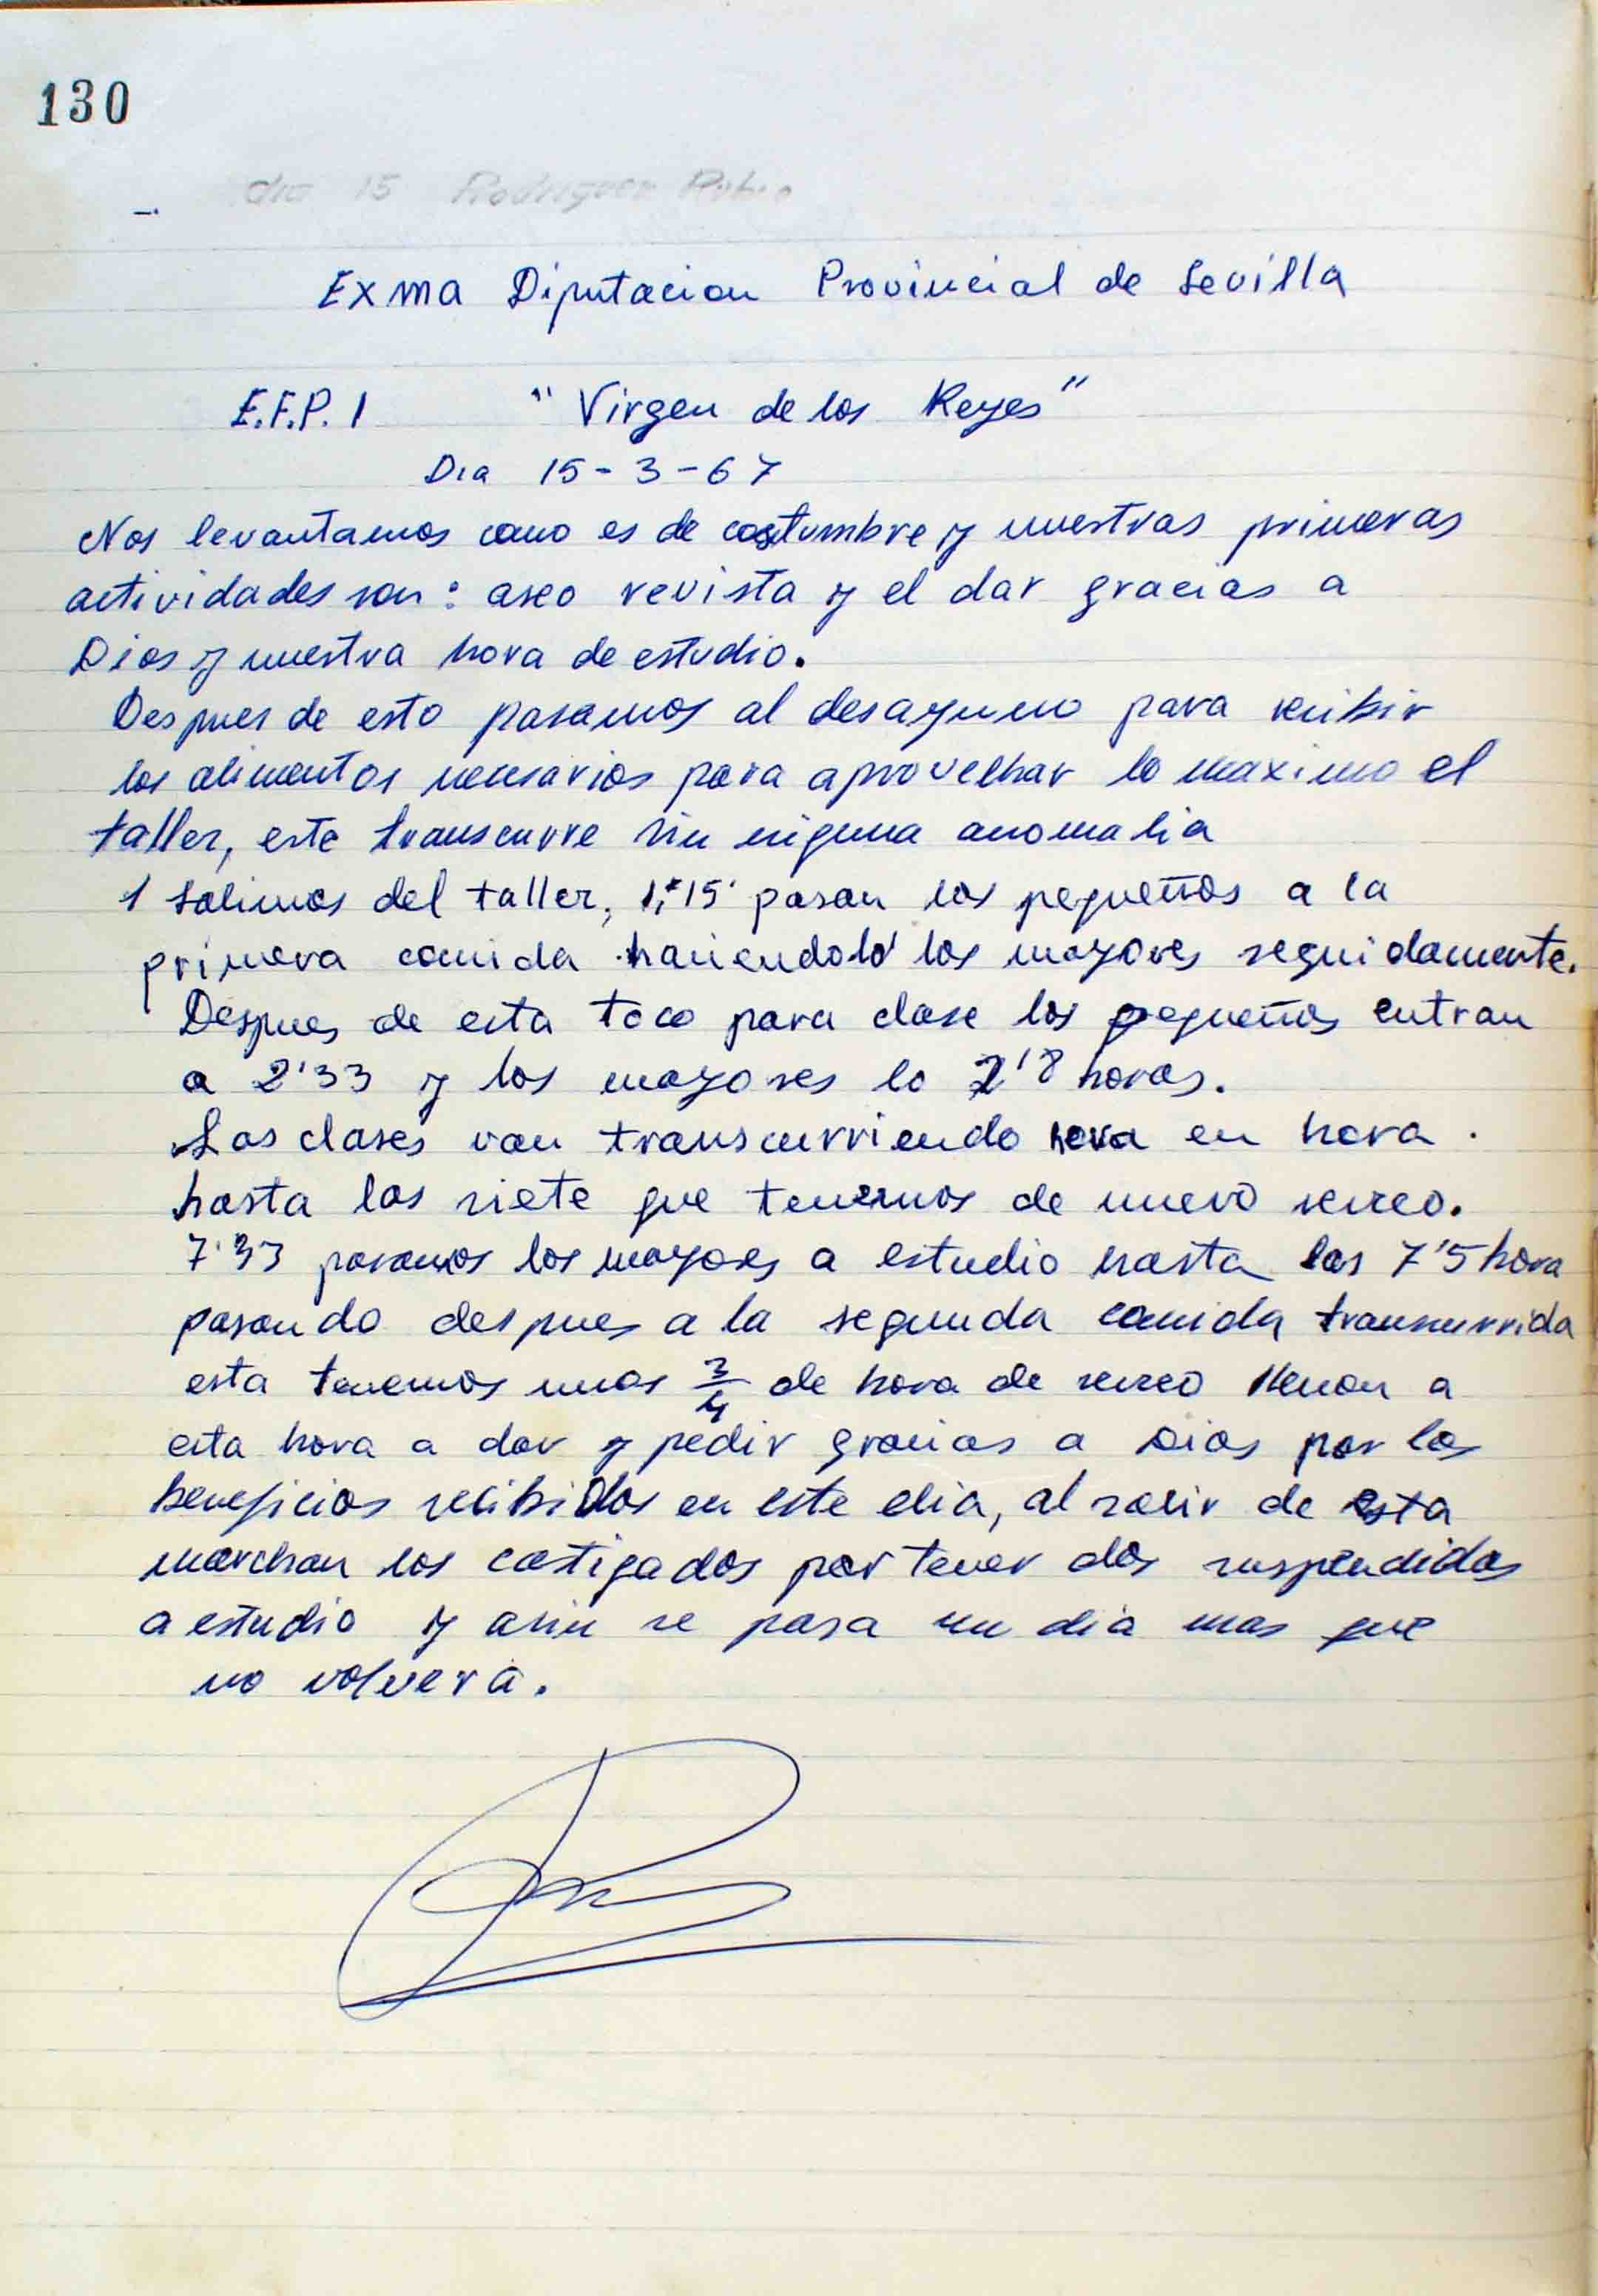 130
dia 15 Rodriguez Rubio
Exma Diputacion Provincial de Sevilla
E.F.P. I "Virgen de los Reyes"
Dia 15-3-67
Nos levantamos como es de costumbre y nuestras primeras
actividades son: aseo revista y el dar gracias a
Dios y nuestra hora de estudio.
Despues de esto pasamos al desayuno para recibir
los alimentos necesarios para aprovechar lo maximo el
taller, este transcurre sin niguna anomalia
1 salimos del taller, 1,15' pasan los pequeños a la
primera comida haciendolo los mayores seguidamente.
Despues de esta toco para clase los pequeños entran
a 2'33 y los mayores lo 2'8 horas.
Las clases van transcurriendo hora en hora.
hasta las siete que tenemos de nuevo recreo.
7'33 pasamos los mayores a estudio hasta las 7'5 hora
pasando despues a la segunda comida transcurrida
esta tenemos unos 3/4 de hora de recreo a
esta hora a dar y pedir gracias a Dios por los
beneficios recibidos en este dia, al salir de esta
marchan los castigados por tener dos suspendidos
a estudio y asin se pasa un dia mas que
no volvera.